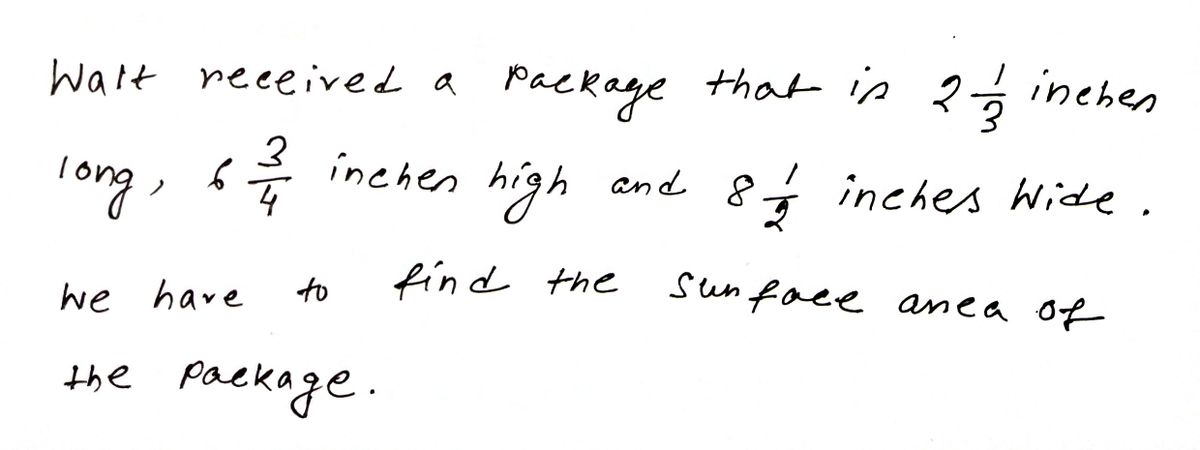 Walt received a package that is 2 1/3 inches
long, 6 3/4 inches high and 8 1/2 inches wide.
We have to find the surface area of
the package.